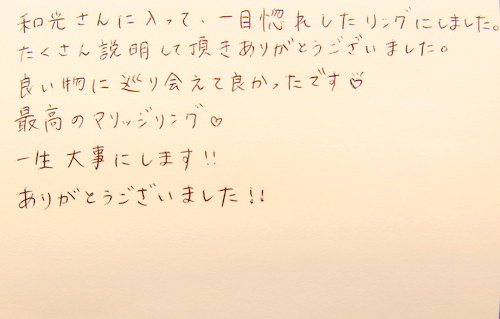 和光さんに入って、一目惚れしたリングにしました。
たくさん説明して頂きありがとうございました。
良い物に巡り会えて良かったです♡
最高のマリッジリング♡
一生大事にします!!
ありがとうございました!!